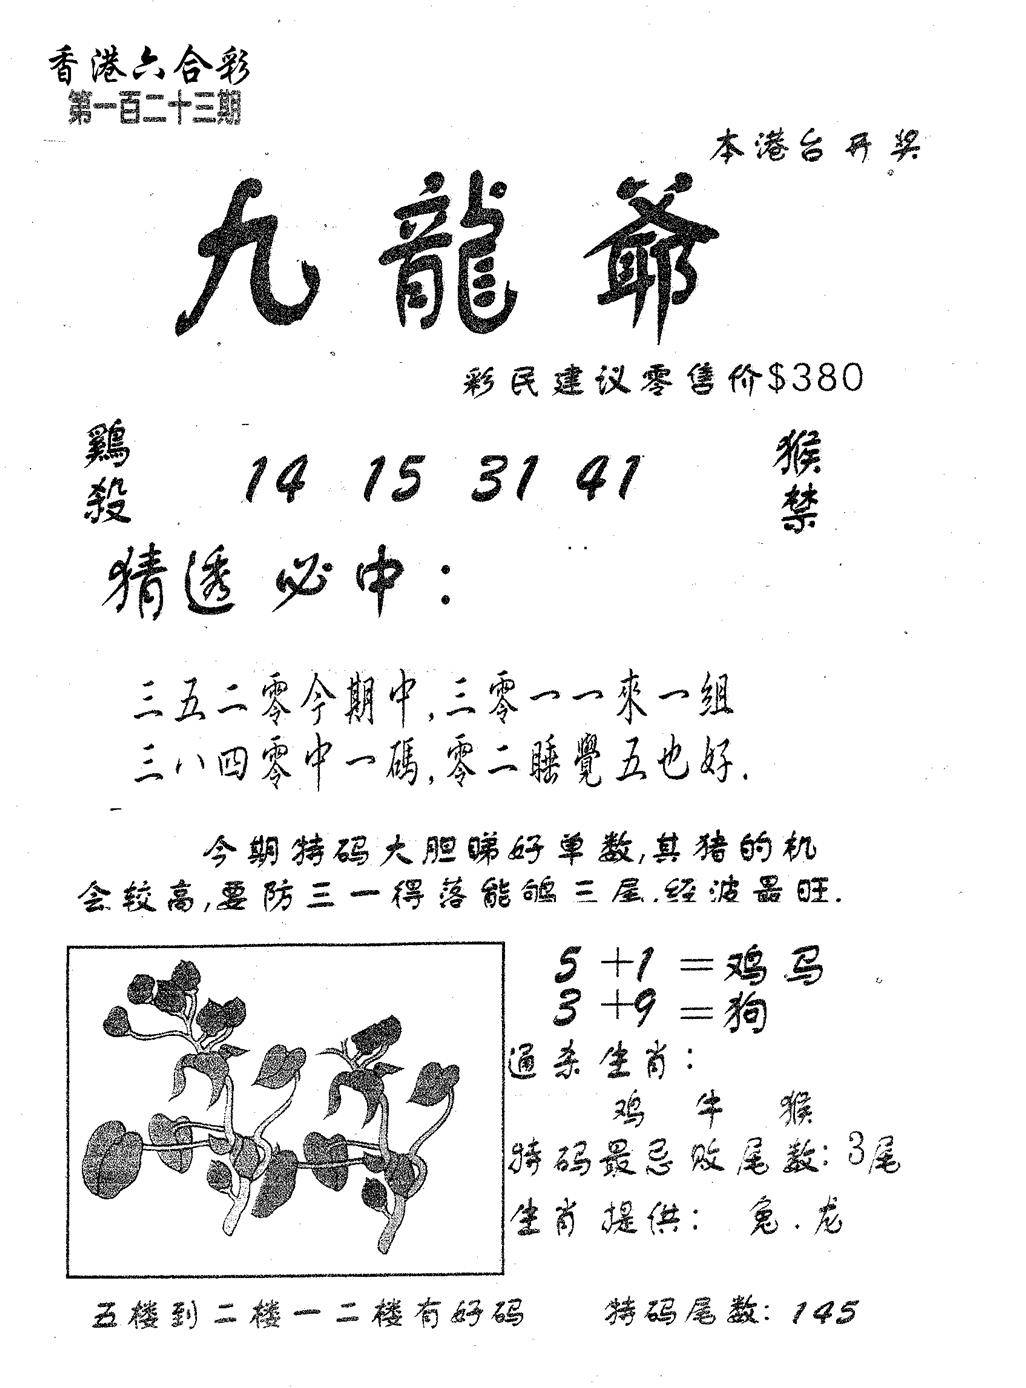 香港六合彩
第一百二十三期
本港台开奖
九龍爺
彩民建议零售价$380
鷄殺 14 15 31 41 猴禁
猜透必中：
三五二零今期中,三零一一來一組
三八四零中一碼,零二睡覺五也好.
今期特码大胆睇好单数,其猪的机
会较高,要防三一得落能鴝三尾.经波最旺.
5+1=鸡马
3+9=狗
通杀生肖：
鸡 牛 猴
特码最忌败尾数：3尾
生肖提供： 兔.龙
五楼到二楼一二楼有好码 特码尾数：145